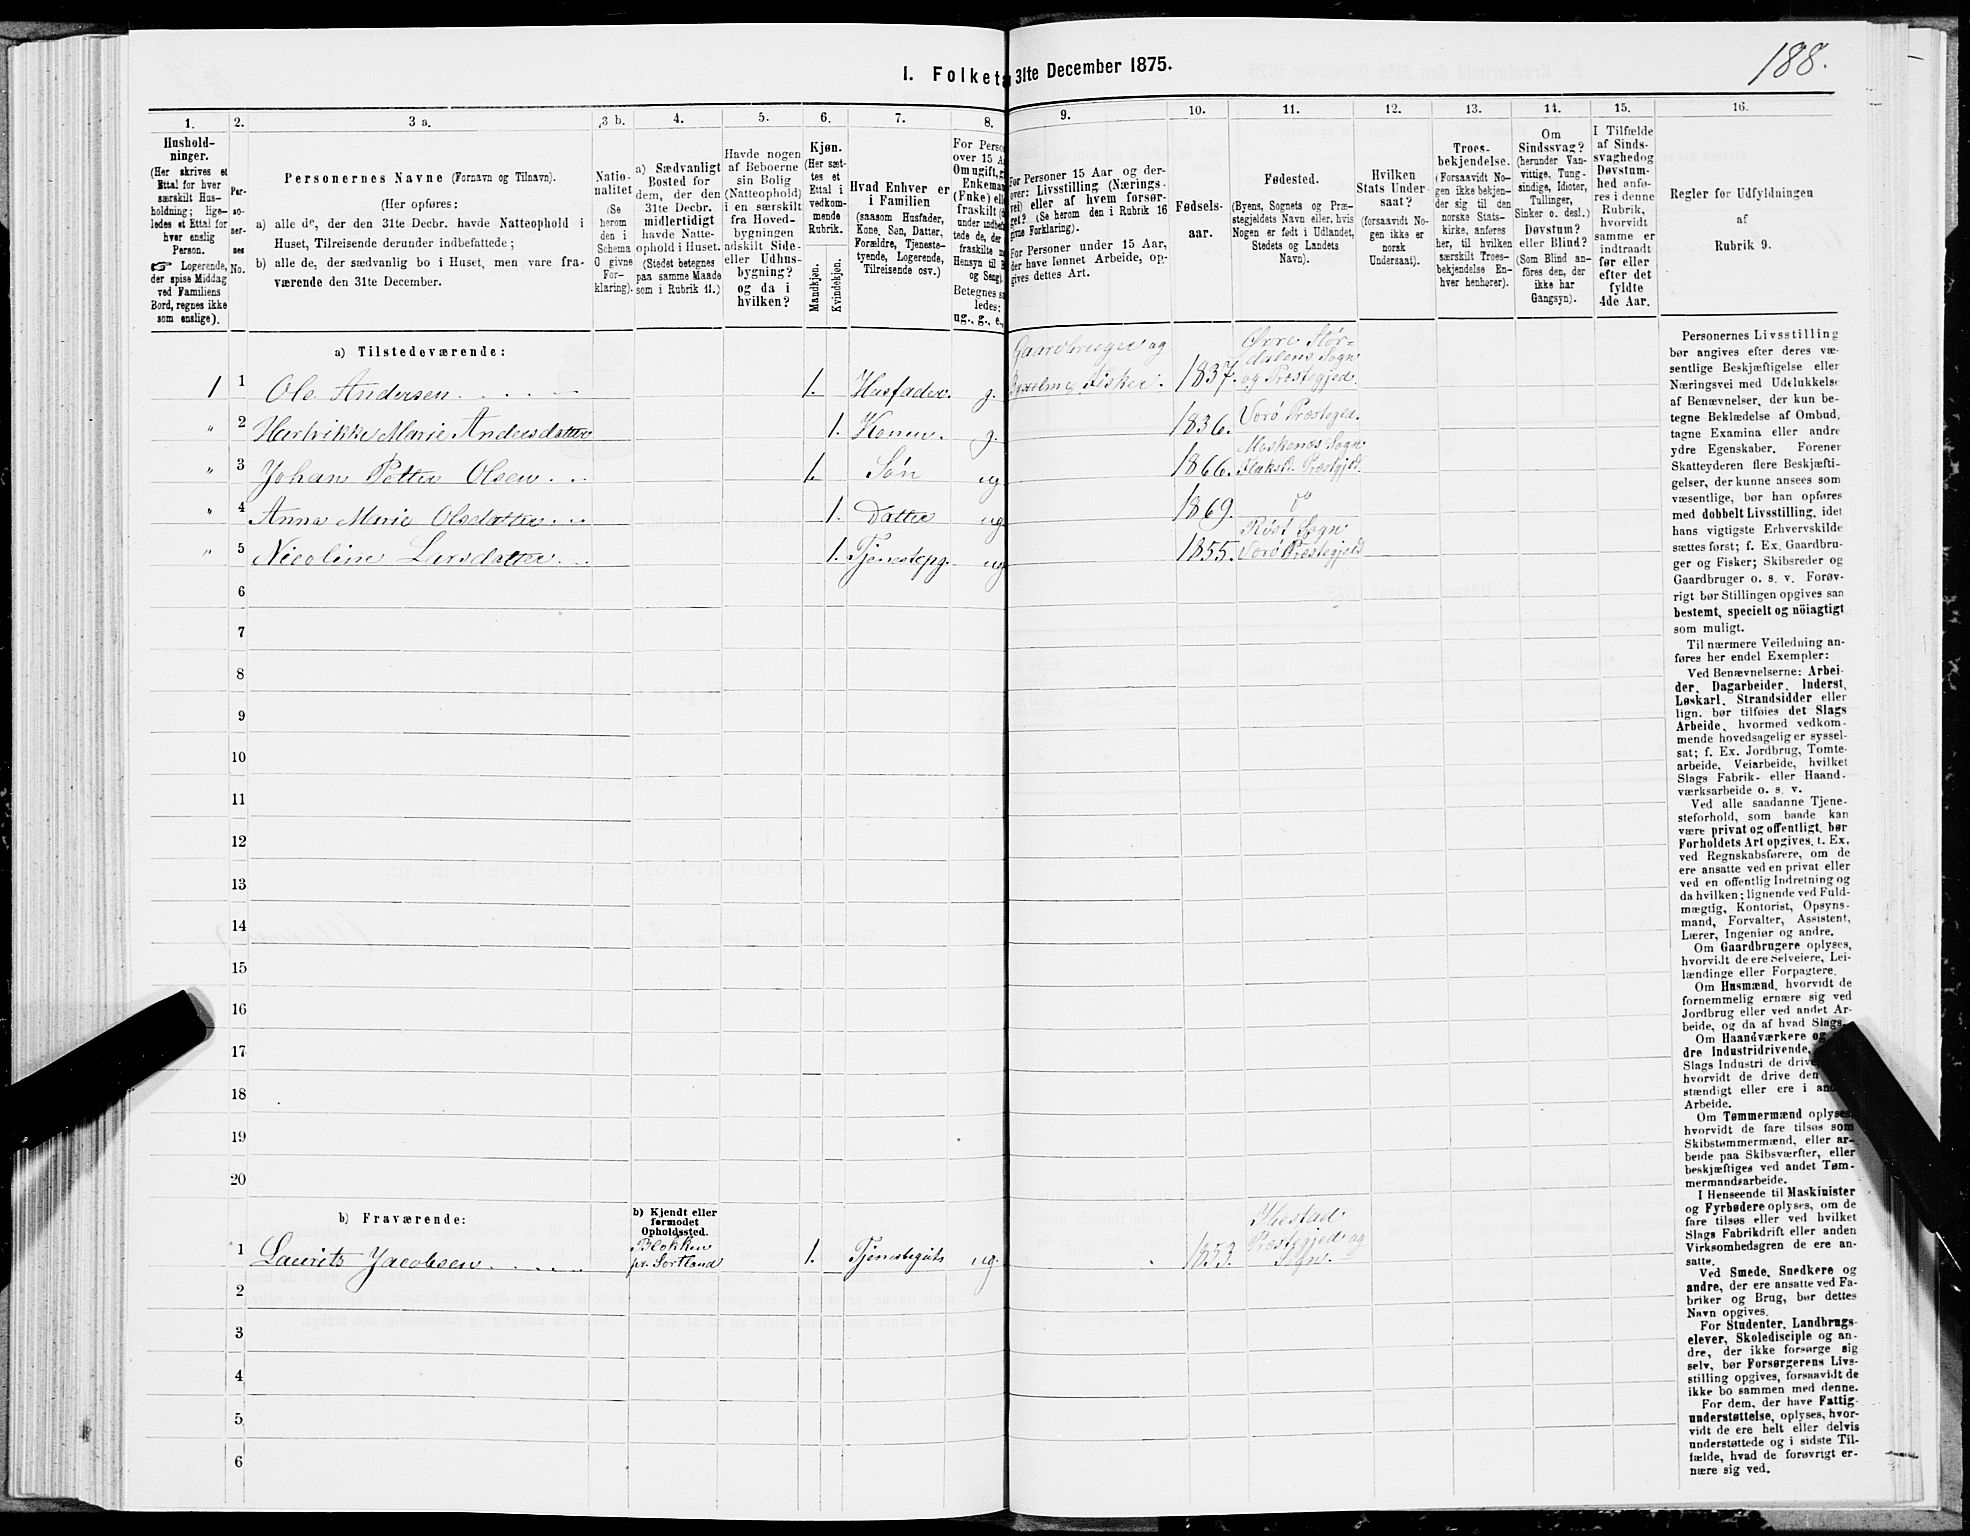 188.
I. Folket
31te December 1875.
1.
2.
3 a.
3 b.
4.
5.
6.
7.
8.
9.
10.
11.
12.
13.
14.
15.
16.
Hushold-
ninger.
(Her skrives et
Ettal for hver
særskilt Hus-
holdning; lige-
ledes et Ettal for
hver enslig
Person.
☞ Logerende,
der spise Middag
ved Familiens
Bord, regnes ikke
som enslige).
Per-
so-
ner-
nes
No.
Personernes Navne (Fornavn og Tilnavn).
(Her opføres:
a) alle de, der den 31te Decbr. havde Natteophold i
Huset, Tilreisende derunder indbefattede;
b) alle de, der sædvanlig bo i Huset, men vare fra-
værende den 31te December.
Natio-
nalitet
(Se
herom
den i
Schema
O givne
For-
klaring).
a) Sædvanligt
Bosted for
dem, der den
31te Decbr.
midlertidigt
havde Natte-
ophold i Huset.
(Stedet betegnes
paa samme Maade
som i Rubrik 11.)
Havde nogen
af Beboerne
sin Bolig
(Natteophold)
i en særskilt
fra Hoved-
bygningen
adskilt Side-
eller Udhus-
bygning?
og da i
hvilken?
Kjøn.
(Her sæt-
tes et
Ettal i
vedkom-
mende
Rubrik.
Mandkjøn.
Kvindekjøn.
Hvad Enhver er
i Familien
(saasom Husfader,
Kone, Søn, Datter,
Forældre, Tjeneste-
tyende, Logerende,
Tilreisende osv.)
For Perso
over 15 A
Om ugift, g
Enkeman
(Fnke) ell
fraskilt (
under indbe
tede de, der
fraskilte m
Hensyn til B
og Seng)
Betegnes s
ledes:
ug., g., e.,
For Personer 15 Aar og der-
over: Livsstilling (Nærings-
vei) eller af hvem forsør-
get? (Se herom den i Rubrik 16
givne Forklaring).
For Personer under 15 Aar,
der have lønnet Arbeide, op-
gives dettes Art.
Fødsels-
aar.
Fødested.
(Byens, Sognets og Præ-
stegjeldets Navn eller, hvis
Nogen er født i Udlandet,
Stedets og Landets
Navn).
Hvilken
Stats Under-
saat?
(forsaavidt No-
gen ikke er
norsk
Undersaat).
Troes-
bekjendelse.
(Forsaavidt No-
gen ikke bekjen-
der sig til den
norske Stats-
kirke, anføres
her, til hvilken
særskilt Troes-
bekjendelse En-
hver henhører).
Om
Sindssvag?
(herunder Van-
vittige, Tung-
sindige, Idioter,
Tullinger,
Sinker o. desl.)
Døvstum?
eller Blind?
(Som Blind an-
føres den, der
ikke har
Gangsyn).
I Tilfælde
af Sinds-
svaghed og
Døvstum-
hed anfø-
res i denne
Rubrik,
hvorvidt
samme er
indtraadt
før eller
efter det
fyldte
4de Aar.
Regler for Udfyldningen
af
Rubrik 9.
a) Tilstedeværende:
Gaardbruger og
Øvre Stør-
dalens Sogn
1 1 Ole Andersen. 1. Husfader. g. Fisker. 1837. og Præstegjed.
" 2 Hartvikke Marie Andersdatter 1. Konen. g. 1836. Værø Præstegjed.
Moskenæs Sogn
" 3 Johan Petter Olsen 1. Søn ug. 1866. Flakst. Præstgjed.
" 4 Anna Marie Olsdatter 1. Datter ug. 1869. do
Røst Sogn
" 5 Nicoline Larsdatter 1. Tjenestepg. ug. 1855. Værø Præstegjeld
6
7
8
9
10
11
12
13
14
15
16
17
18
19
20
b) Fraværende:
b) Kjendt eller
formodet
Opholdssted.
Blokken
pr. Sortland
1 Laurits Jacobsen 1. Tjenestegut ug. 1853. Præstegjed og
Sogn.
2
3
4
5
6
Personernes Livsstilling
bør angives efter deres væ-
sentlige Beskjæftigelse eller
Næringsvei med Udelukkelse
af Benævnelser, der kun be-
tegne Beklædelse af Ombud,
tagne Examina eller andre
ydre Egenskaber. Forener
Skatteyderen flere Beskjæfti-
gelser, der kunne ansees som
væsentlige, bør han opføres
med dobbelt Livsstilling, idet
hans vigtigste Erhvervskilde
sættes først; f. Ex. Gaardbru-
ger og Fisker; Skibsreder og
Gaardbruger o. s. v. Forøv-
rigt bør Stillingen opgives saa
bestemt, specielt og nöiagtigt
som muligt.
Til nærmere Veiledning an-
føres her endel Exempler:
Ved Benævnelserne: Arbei-
der, Dagarbeider, Inderst,
Løskarl, Strandsidder eller
lign. bør tilføies det Slags
Arbeide, hvormed vedkom-
mende hovedsagelig er syssel-
sat; f. Ex. Jordbrug, Tomte-
arbeide, Veiarbeide, hvilket
Slags Fabrik- eller Haand-
værksarbeide o. s. v.
Ved alle saadanne Tjene-
steforhold, som baade kan
være privat og offentligt, bør
Forholdets Art opgives, f. Ex.
ved Regnskabsførere, om de
ere ansatte ved en privat eller
ved en offentlig Indretning og
da hvilken; lignende ved Fuld-
mægtig, Kontorist, Opsyns-
mand, Forvalter, Assistent,
Lærer, Ingeniør og andre.
Om Gaardbrugere oplyses,
hvorvidt de ere Selveiere, Lei-
lændinge eller Forpagtere.
Om Husmænd, hvorvidt de
fornemmelig ernære sig ved
Jordbrug eller ved andet Ar-
beide, og da af hvad Slags.
Om Haandværkere og
dre Industridrivende,
Slags Industri de drive,
hvorvidt de drive den
stændigt eller ere i
Arbeide.
Om Tømmermænd oplyses,
hvorvidt de fare tilsøs som
Skibstømmermænd, eller ar-
beide paa Skibsværfter, eller
beskjæftiges ved andet Tøm-
mermandsarbeide.
I Henseende til Maskinister
og Fyrbødere oplyses, om de
fare tilsøs eller ved hvilket
Slags Fabrikdrift eller anden
Virksomhedsgren de ere an-
satte.
Ved Smede, Snedkere og
andre, der ere ansatte ved Fa-
briker og Brug, bør dettes
Navn opgives.
For Studenter, Landbrugs-
elever, Skoledisciple og an-
dre, der ikke forsørge sig
selv, bør Forsørgerens Livs-
stilling opgives, forsaavidt de
ikke bo sammen med denne.
For dem, der have Fattig-
understøttelse, oplyses, hvor-
vidt de ere helt eller delvis
understøttede og i sidste Til-
fælde, hvad de forøvrigt er-
nære sig ved.